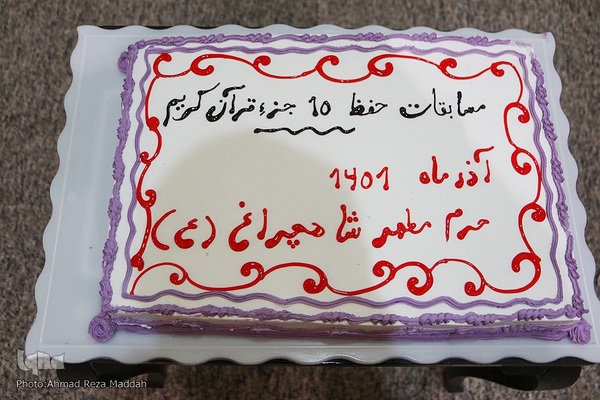 مسابقات حفظ 10 جزء قرآن کریم
آذر ماه 1401
حرم مطهر شاهچراغ (ع)
iqna
Photo:Ahmad Reza Maddah